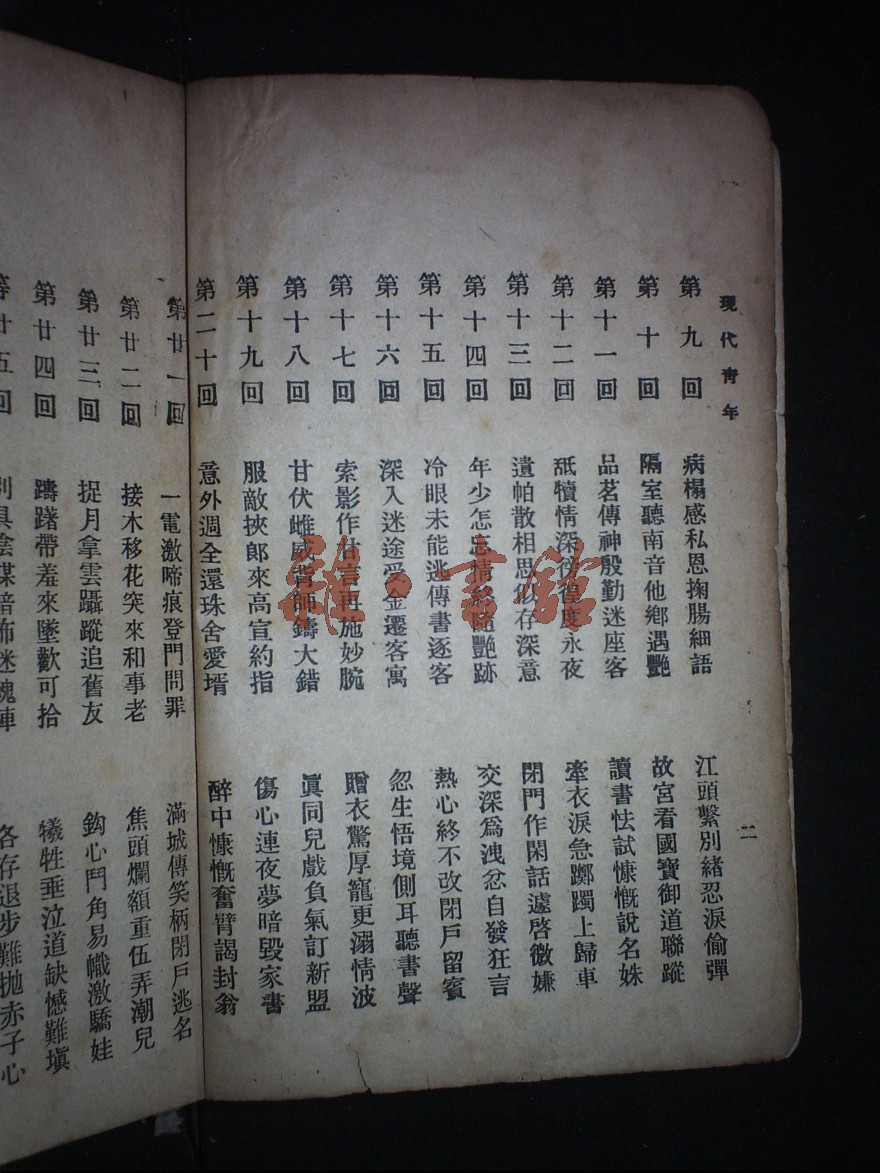 現代青年
二
第九回 病榻感私恩掬腸細語 江頭繫別緒忍淚偷彈
第十回 隔室聽南音他鄉遇艷 故宮看國寶御道聯蹤
第十一回 品茗傳神殷勤迷座客 讀書怯試慷慨說名姝
第十二回 舐犢情深徬徨度永夜 牽衣淚急躑躅上歸車
第十三回 遺帕散相思似存深意 閉門作閑話遽啓微嫌
第十四回 年少怎忘情終隨艷跡 交深爲洩忿自發狂言
第十五回 冷眼未能逃傳書逐客 熱心終不改閉戶留賓
第十六回 深入迷途受金遷客寓 忽生悟境側耳聽書聲
第十七回 索影作甘言再施妙腕 贈衣驚厚寵更溺情波
第十八回 甘伏雌威背師鑄大錯 眞同兒戲負氣訂新盟
第十九回 服敵挾郎來高宣約指 傷心連夜夢暗毀家書
第二十回 意外週全還珠舍愛壻 醉中慷慨奮臂謁封翁
第廿一回 一電激啼痕登門問罪 滿城傳笑柄閉戶逃名
第廿二回 接木移花突來和事老 焦頭爛額重伍弄潮兒
第廿三回 捉月拿雲躡蹤追舊友 鈎心鬥角易幟激驕娃
第廿四回 躊躇帶羞來墜歡可拾 犧牲垂泣道缺憾難塡
五回 具陰謀暗佈迷魂 各存退步難拋赤子心
雜·書館